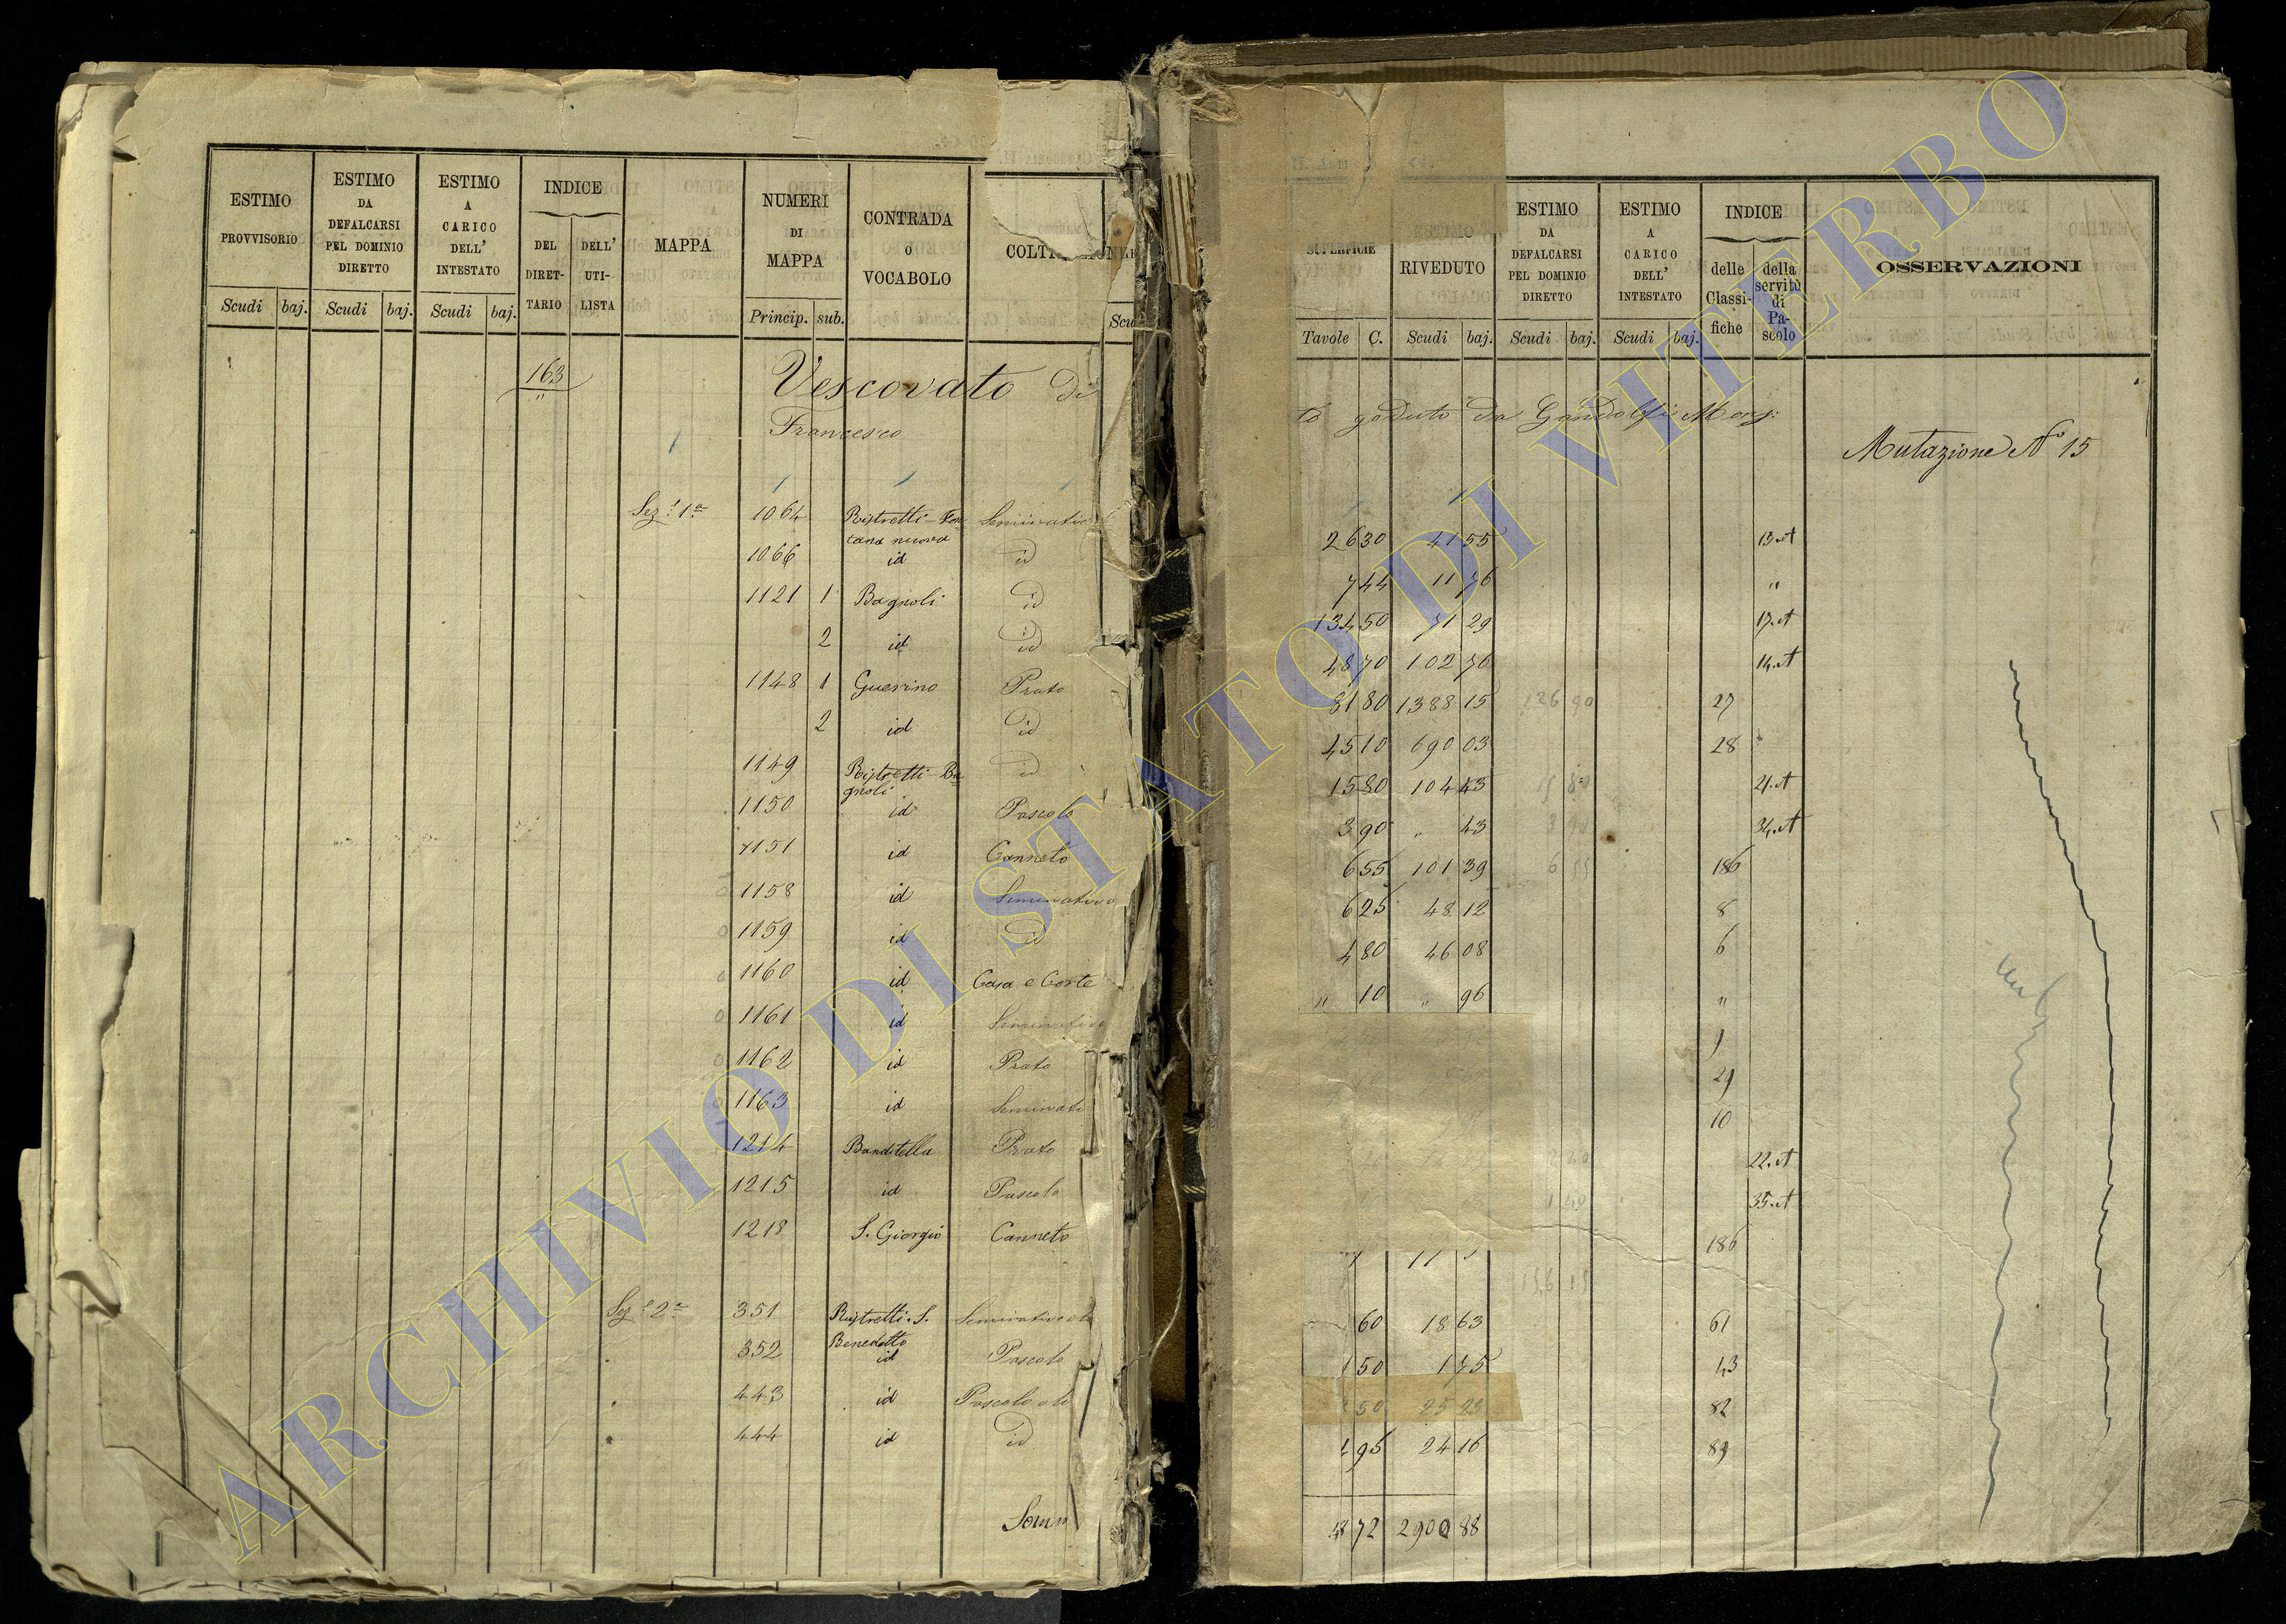 ESTIMO PROVVISORIO
Scudi baj.
ESTIMO DA DEFALCARSI PEL DOMINIO DIRETTO
Scudi baj.
ESTIMO A CARICO DELL' INTESTATO
Scudi baj.
INDICE
DEL DIRET-TARIO
DELL' UTI-LISTA
MAPPA
NUMERI DI MAPPA
Princip. sub.
CONTRADA O VOCABOLO
COLT
Scu
163
Vescovato Di
Francesco
Sez.e 1a 1064 Ristretti-Fon Seminativo
tana nuova
1066 id id
1121 1 Bagnoli id
2 id id
1148 1 Guerrino Prato
2 id id
1149 Ristretti-Ba id
gnoli
1150 id Pascolo
1151 id Canneto
1158 id Seminativo
1159 id id
1160 id Casa e Corte
1161 id Seminativo
1162 id Prato
1163 id Seminati
1214 Banditella Prato
1215 id Pascolo
1218 S. Giorgio Canneto
Sez.e 2a 351 Ristretti. S. Seminativo ol
Benedetto
352 id Pascolo
443 id Pascolo ol
444 id id
Somm
SUPERFICIE
Tavole C.
RIVEDUTO
Scudi baj.
ESTIMO DA DEFALCARSI PEL DOMINIO DIRETTO
Scudi baj.
ESTIMO A CARICO DELL' INTESTATO
Scudi baj.
INDICE
delle Classi-fiche
della servitù di Pa-scolo
OSSERVAZIONI
to goduto da Gandolfi Monsr
Mutazione No 15
26 30 41 55 13.et
7 44 11 76 "
134 50 71 29 17.et
48 70 102 76 14.et
81 80 1388 15 136 90 27
45 10 690 03 28
15 80 104 43 15 80 21.et
3 90 " 43 3 90 34.et
6 55 101 39 6 55 186
6 25 48 12 8
4 80 46 08 6
" 10 " 96 "
1
29
10
22.et
1 40 35.et
186
60 18 63 61
1 50 1 75 43
50 25 23 82
1 95 24 16 89
48 72 2900 88
ARCHIVIO DI STATO DI VITERBO